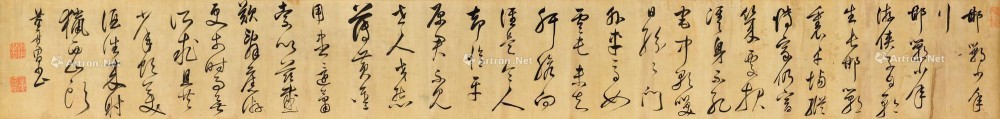 邯鄲少年
行
邯鄲少年
游俠子自矜
生長邯鄲
裏千場縱
博家仍富
幾度報
仇身不死
宅中歌笑
日紛紛門
外車馬如
雲未知
肝膽向
誰是令人
却憶平
原君不見
世人交態
薄黃金
用盡還疏
索以茲感
歎辭舊游
更於時事無
所求且與
少年飲美
酒往來射
獵西山頭
董其昌書
Artron.Net
Artron.Net
Artron.Net
Artron.Net